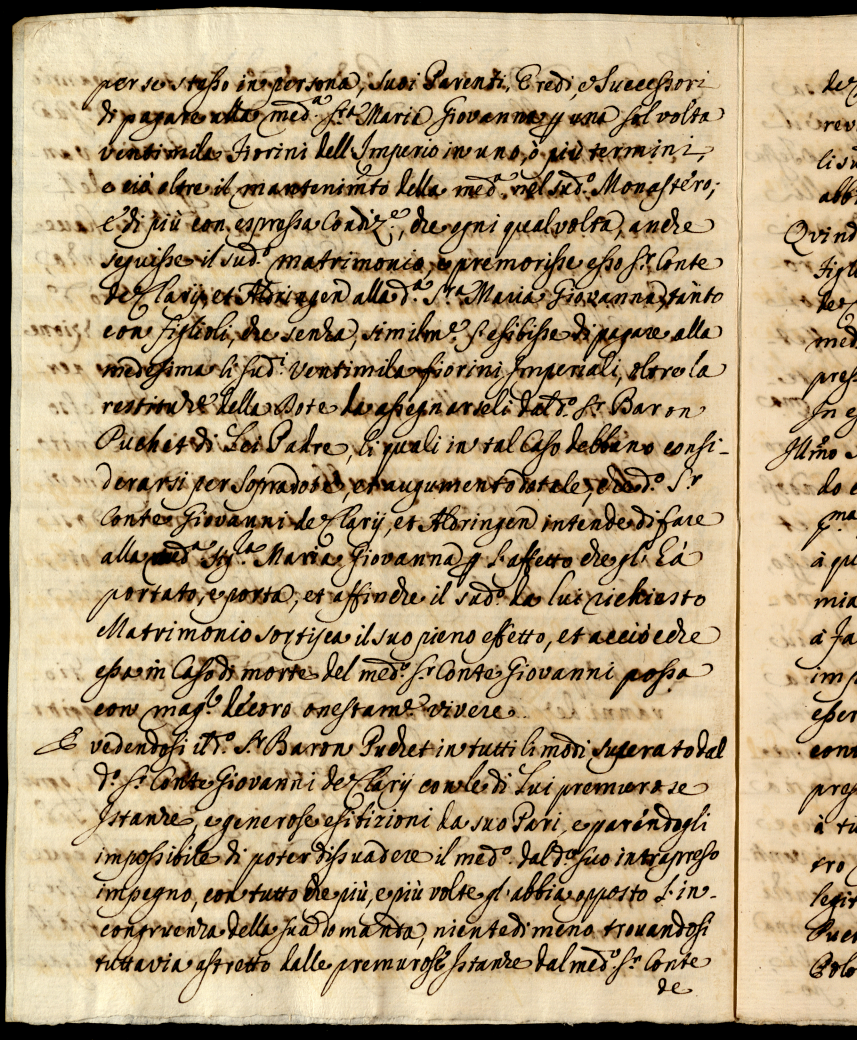 per se stesso in persona, suoi Parenti, Eredi, e Successori
di pagare alla med.ª Sig.ª Maria Giovanna p una sol volta
ventimila Fiorini dell'Imperio in uno, ò più termini,
e ciò oltre il mantenim.to della med.ª nel sud.º Monastéro;
E' di più con espressa Condiz.e, che ogni qualvolta, anche
seguisse il sud.º matrimonio, e premorisse esso Sr. Conte
de Clarij, et Aldringen alla d.ª Sig.ª Maria Giovanna, tanto
con figlioli, che senza, similm.e s'esibisse di pagare alla
medesima li sud.i ventimila fiorini Imperiali, oltre la
restituz.e della Dote da assegnarseli dal d.º Sr. Baron
Puchet di Lei Padre, li quali in tal Caso debbano consi-
derarsi per Sopradote, et augumento dotale, che d.º Sr.
Conte Giovanni de Clarij, et Aldringen intende di fare
alla med.ª Sig.ª Maria Giovanna p l'affetto che gl' hà
portato, e porta, et affinche il sud.º da lui richiesto
Matrimonio sortisca il suo pieno effetto, et acciòche
essa in Caso di morte del med.º Sr. Conte Giovanni possa
con mag.r decoro onestam.e vivere.
E vedendosi il d.º Sr. Baron Puchet in tutti li modi superato dal
d.º Sr. Conte Giovanni de Clarij con le di Lui premurose
Istanze, e generose esibizioni da suo Pari, e paréndogli
impossibile di poter dissuadere il med.º dal d.º suo intrapreso
impegno, con tutto che più, e più volte gl' abbia opposto l'in-
congruenza della sua domanda, nientedimeno trovandosi
tuttavia astretto dalle premurose Istanze dal med.º Sr. Conte
de
de
rev
li su
abb
Quind
figl
de
med
pres
In e
Ill.mo S
do
p.ma
à qu
mia
à fa
imp
esser
con
pres
à tu
tro
legit
Puc